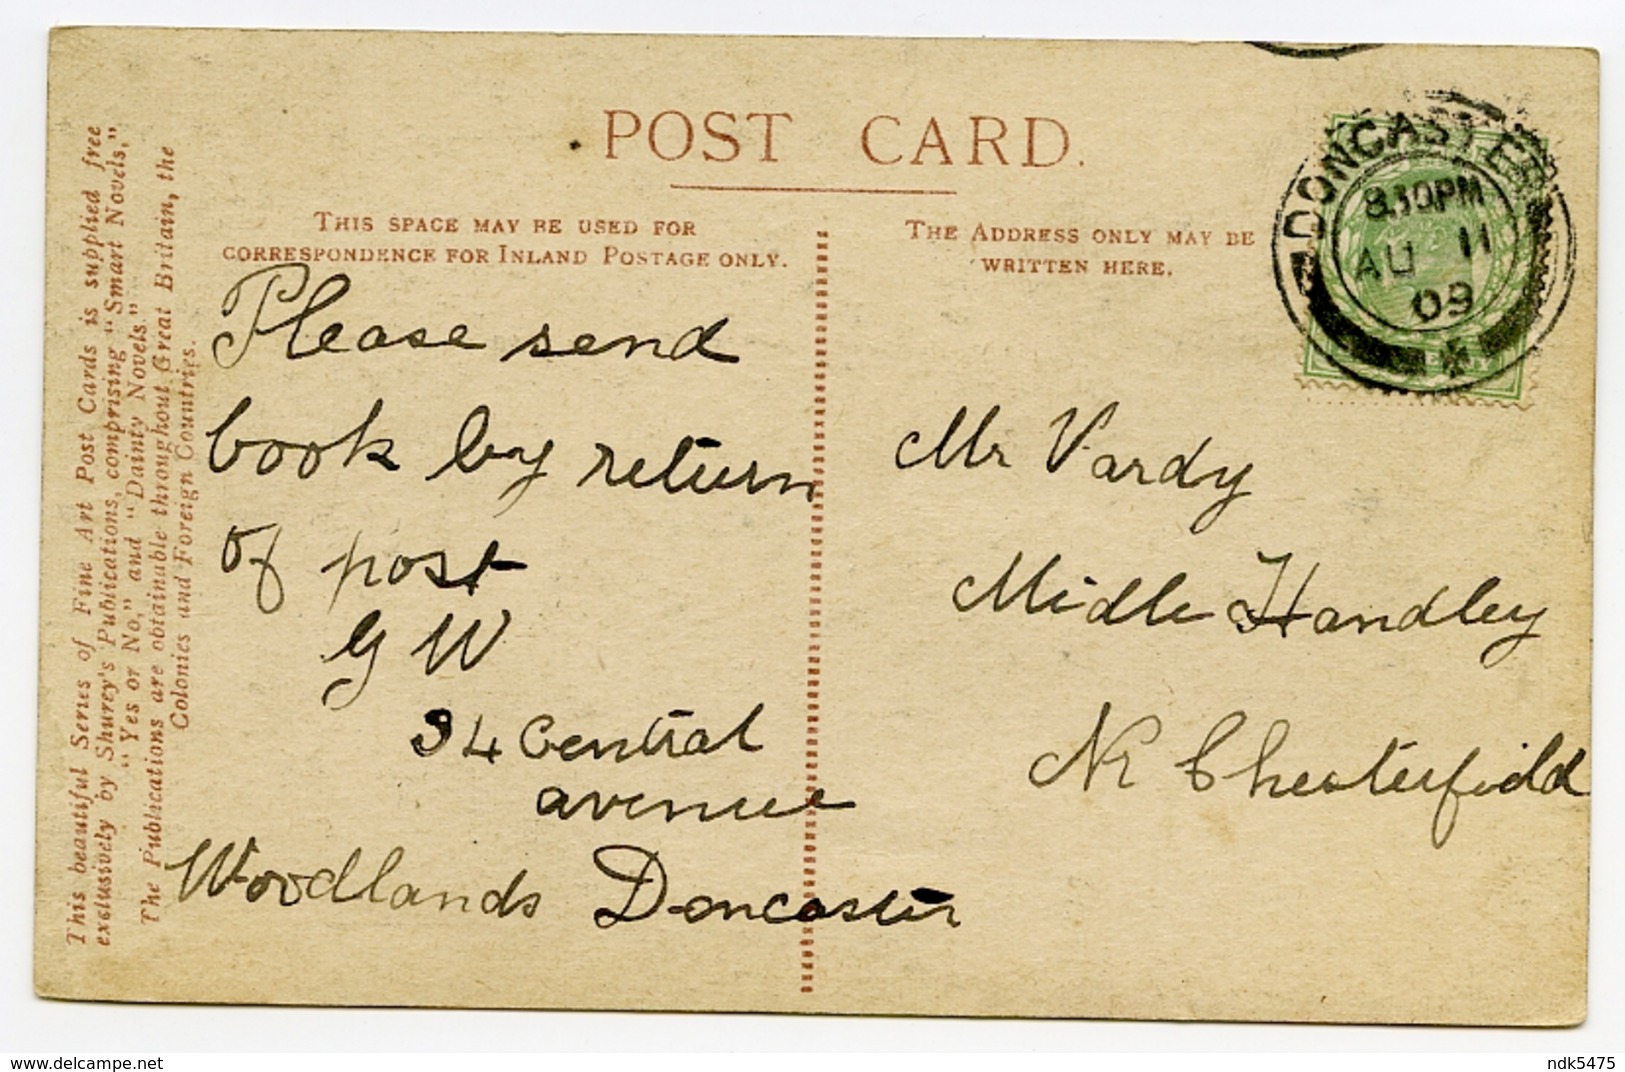 POST CARD.
THIS SPACE MAY BE USED FOR
CORRESPONDENCE FOR INLAND POSTAGE ONLY.
THE ADDRESS ONLY MAY BE
WRITTEN HERE.
DONCASTER
8.30PM
AU 11
09
Please send
book by return
of post
G W
34 Central
avenue
Woodlands Doncaster
Mr Vardy
Midle Handley
Nr Chesterfield
This beautiful Series of Fine Art Post Cards is supplied free
exclusively by Shurey's Publications, comprising "Smart Novels,"
"Yes or No," and "Dainty Novels."
The Publications are obtainable throughout Great Britain, the
Colonies and Foreign Countries.
delcampe.net
ndk5475